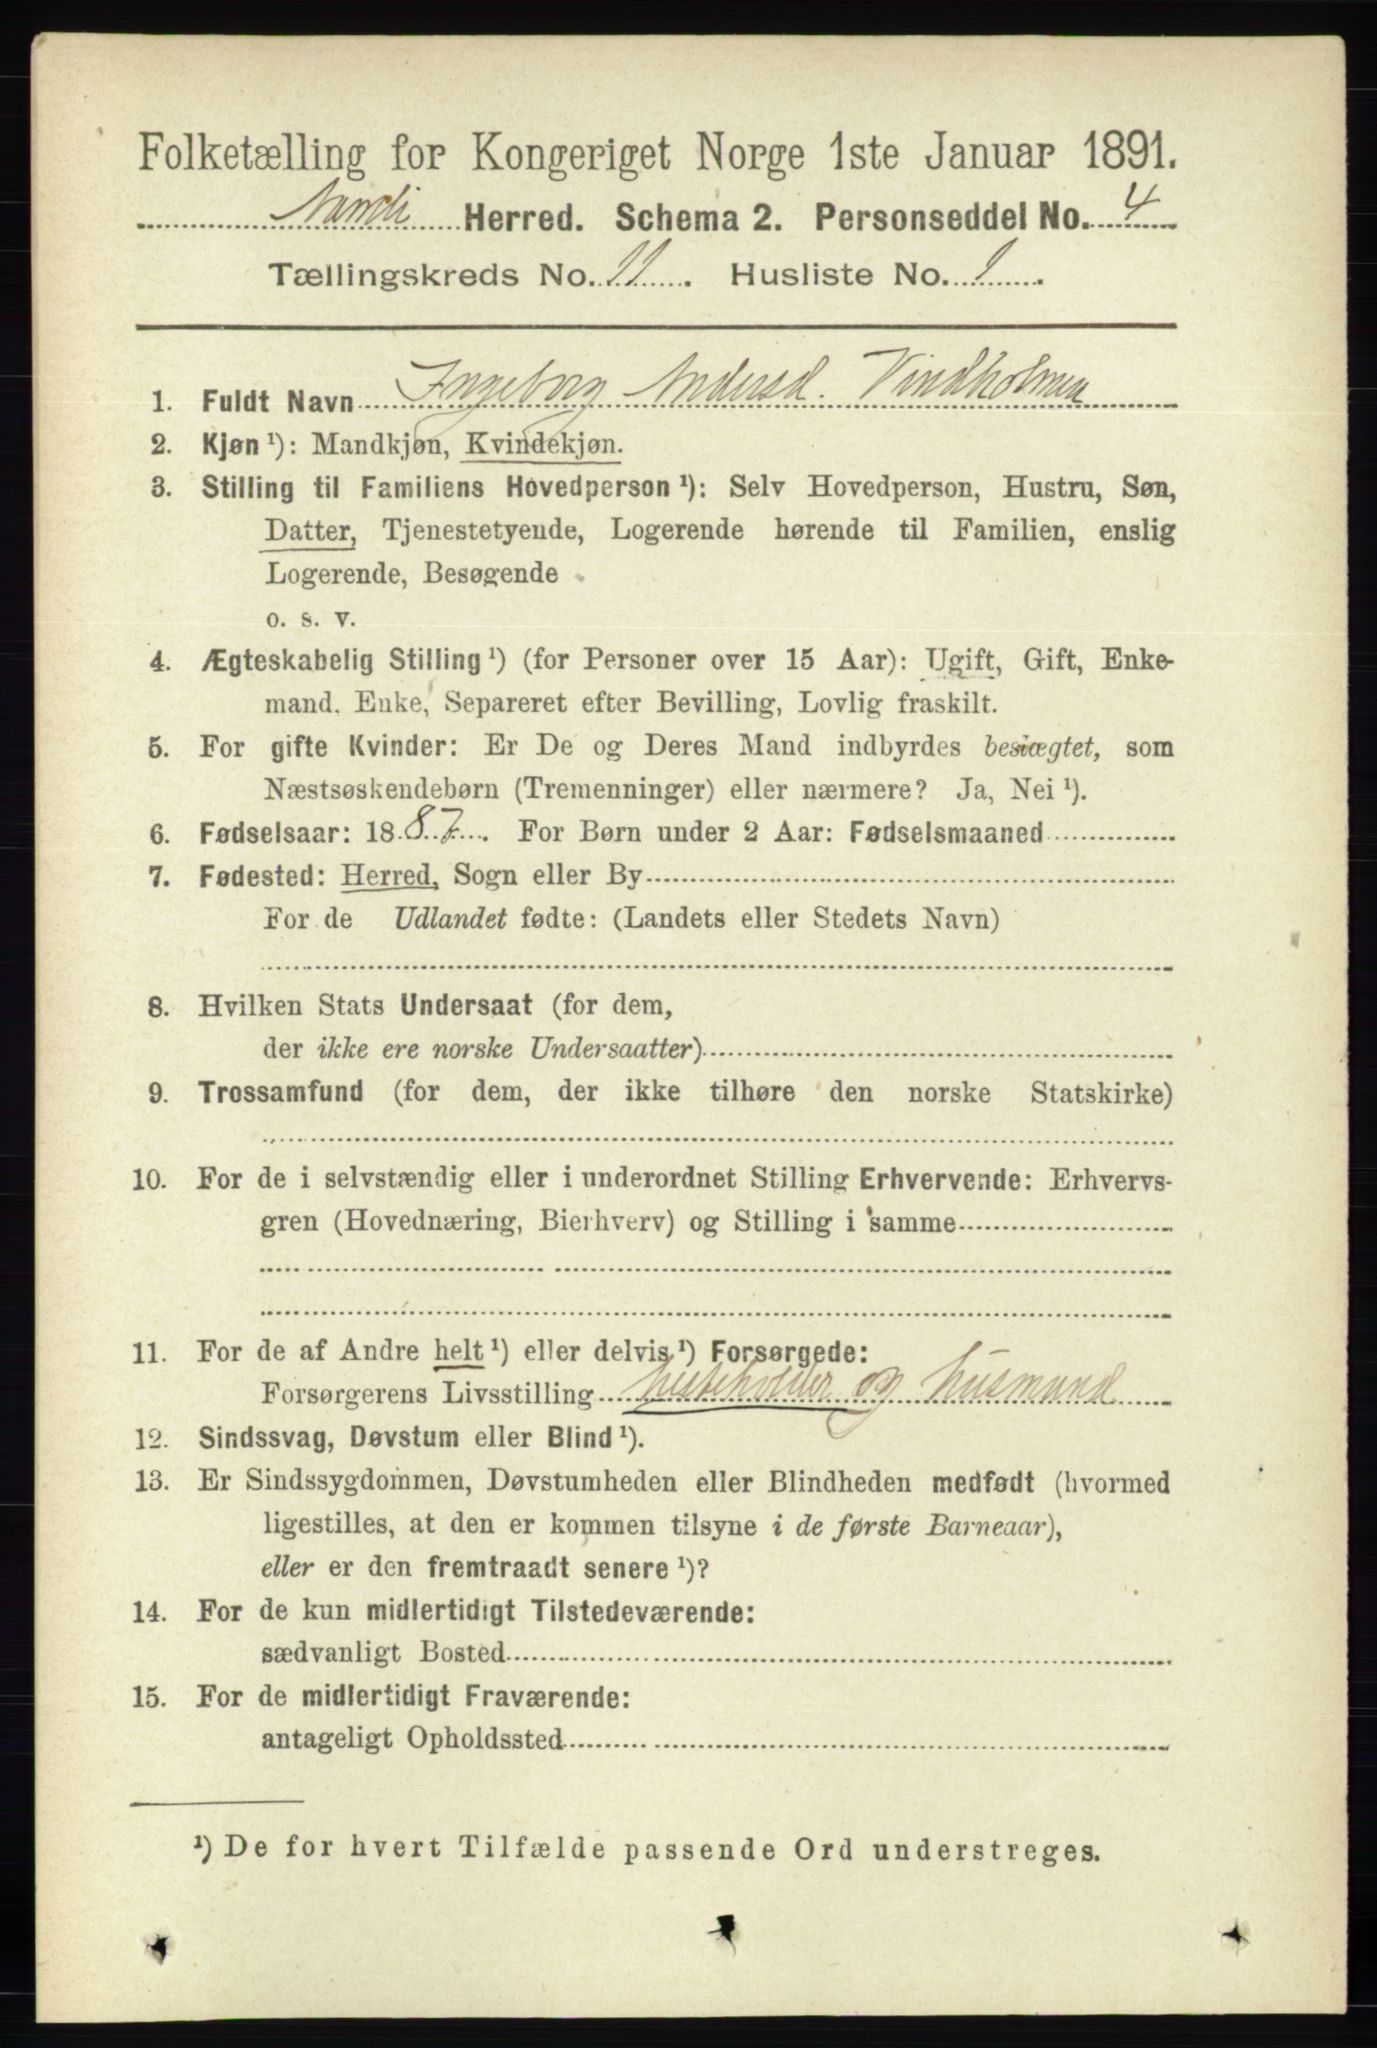 Folketælling for Kongeriget Norge 1ste Januar 1891.
Herred. Schema 2. Personseddel No. 4
Tællingskreds No. 11. Husliste No. 1.
1. Fuldt Navn Ingeborg Andersd. Vindholmen
2. Kjøn ¹): Mandkjøn, Kvindekjøn.
3. Stilling til Familiens Hovedperson ¹): Selv Hovedperson, Hustru, Søn,
Datter, Tjenestetyende, Logerende hørende til Familien, enslig
Logerende, Besøgende
o. s. v.
4. Ægteskabelig Stilling ¹) (for Personer over 15 Aar): Ugift, Gift, Enke-
mand, Enke, Separeret efter Bevilling, Lovlig fraskilt.
5. For gifte Kvinder: Er De og Deres Mand indbyrdes beslægtet, som
Næstsøskendebørn (Tremenninger) eller nærmere? Ja, Nei ¹).
6. Fødselsaar: 1887. For Børn under 2 Aar: Fødselsmaaned
7. Fødested: Herred, Sogn eller By
For de Udlandet fødte: (Landets eller Stedets Navn)
8. Hvilken Stats Undersaat (for dem,
der ikke ere norske Undersaatter)
9. Trossamfund (for dem, der ikke tilhøre den norske Statskirke)
10. For de i selvstændig eller i underordnet Stilling Erhvervende: Erhvervs-
gren (Hovednæring, Bierhverv) og Stilling i samme
11. For de af Andre helt ¹) eller delvis ¹) Forsørgede:
Forsørgerens Livsstilling hesteholder og husmand
12. Sindssvag, Døvstum eller Blind ¹).
13. Er Sindssygdommen, Døvstumheden eller Blindheden medfødt (hvormed
ligestilles, at den er kommen tilsyne i de første Barneaar),
eller er den fremtraadt senere ¹)?
14. For de kun midlertidigt Tilstedeværende:
sædvanligt Bosted
15. For de midlertidigt Fraværende:
antageligt Opholdssted
¹) De for hvert Tilfælde passende Ord understreges.